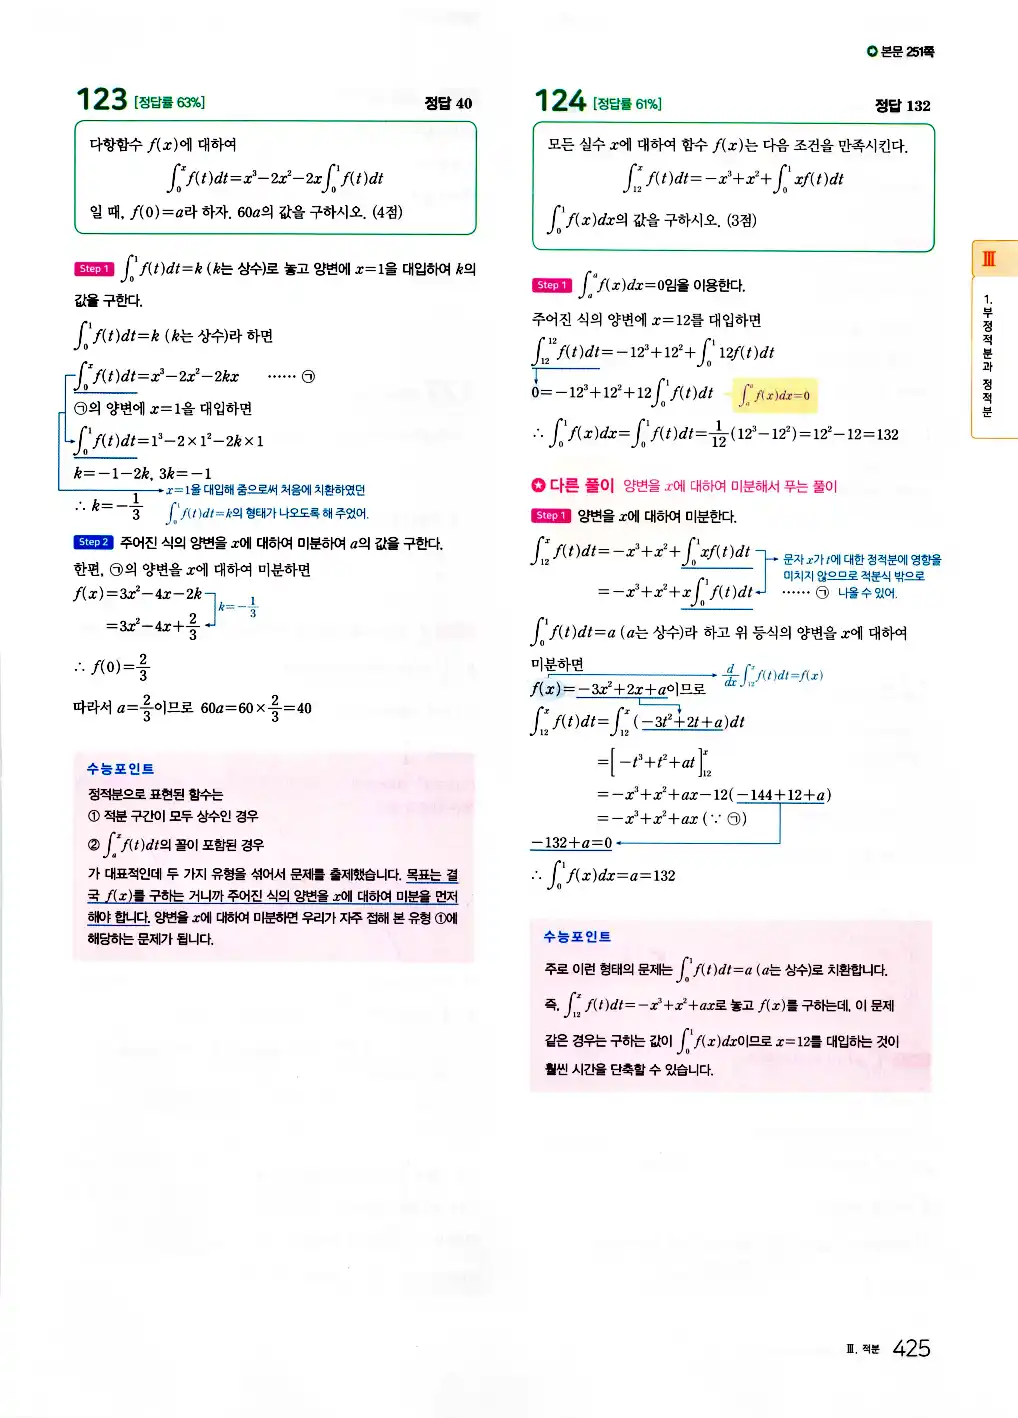 본문 251쪽
123 [정답률 63%] 정답 40
다항함수 f(x)에 대하여
∫₀ˣ f(t)dt=x³−2x²−2x∫₀¹ f(t)dt
일 때, f(0)=a라 하자. 60a의 값을 구하시오. (4점)
Step 1 ∫₀¹ f(t)dt=k (k는 상수)로 놓고 양변에 x=1을 대입하여 k의
값을 구한다.
∫₀¹ f(t)dt=k (k는 상수)라 하면
∫₀ˣ f(t)dt=x³−2x²−2kx ······ ㉠
㉠의 양변에 x=1을 대입하면
∫₀¹ f(t)dt=1³−2×1²−2k×1
k=−1−2k, 3k=−1
x=1을 대입해 줌으로써 처음에 치환하였던
∴ k=−1/3 ∫₀¹ f(t)dt=k의 형태가 나오도록 해 주었어.
Step 2 주어진 식의 양변을 x에 대하여 미분하여 a의 값을 구한다.
한편, ㉠의 양변을 x에 대하여 미분하면
f(x)=3x²−4x−2k
k=−1/3
=3x²−4x+2/3
∴ f(0)=2/3
따라서 a=2/3이므로 60a=60×2/3=40
수능포인트
정적분으로 표현된 함수는
① 적분 구간이 모두 상수인 경우
② ∫ₐˣ f(t)dt의 꼴이 포함된 경우
가 대표적인데 두 가지 유형을 섞어서 문제를 출제했습니다. 목표는 결
국 f(x)를 구하는 거니까 주어진 식의 양변을 x에 대하여 미분을 먼저
해야 합니다. 양변을 x에 대하여 미분하면 우리가 자주 접해 본 유형 ①에
해당하는 문제가 됩니다.
124 [정답률 61%] 정답 132
모든 실수 x에 대하여 함수 f(x)는 다음 조건을 만족시킨다.
∫₁₂ˣ f(t)dt=−x³+x²+∫₀¹ xf(t)dt
∫₀¹ f(x)dx의 값을 구하시오. (3점)
Step 1 ∫ₐᵃ f(x)dx=0임을 이용한다.
주어진 식의 양변에 x=12를 대입하면
∫₁₂¹² f(t)dt=−12³+12²+∫₀¹ 12f(t)dt
0=−12³+12²+12∫₀¹ f(t)dt ∫ₐᵃ f(x)dx=0
∴ ∫₀¹ f(x)dx=∫₀¹ f(t)dt=1/12(12³−12²)=12²−12=132
다른 풀이 양변을 x에 대하여 미분해서 푸는 풀이
Step 1 양변을 x에 대하여 미분한다.
∫₁₂ˣ f(t)dt=−x³+x²+∫₀¹ xf(t)dt 문자 x가 t에 대한 정적분에 영향을
미치지 않으므로 적분식 밖으로
=−x³+x²+x∫₀¹ f(t)dt ······ ㉠ 나올 수 있어.
∫₀¹ f(t)dt=a (a는 상수)라 하고 위 등식의 양변을 x에 대하여
미분하면 d/dx∫₁₂ˣ f(t)dt=f(x)
f(x)=−3x²+2x+a이므로
∫₁₂ˣ f(t)dt=∫₁₂ˣ (−3t²+2t+a)dt
=[−t³+t²+at]₁₂ˣ
=−x³+x²+ax−12(−144+12+a)
=−x³+x²+ax (∵ ㉠)
−132+a=0
∴ ∫₀¹ f(x)dx=a=132
수능포인트
주로 이런 형태의 문제는 ∫₀¹ f(t)dt=a (a는 상수)로 치환합니다.
즉, ∫₁₂ˣ f(t)dt=−x³+x²+ax로 놓고 f(x)를 구하는데, 이 문제
같은 경우는 구하는 값이 ∫₀¹ f(x)dx이므로 x=12를 대입하는 것이
훨씬 시간을 단축할 수 있습니다.
Ⅲ
1. 부정적분과 정적분
Ⅲ. 적분 425